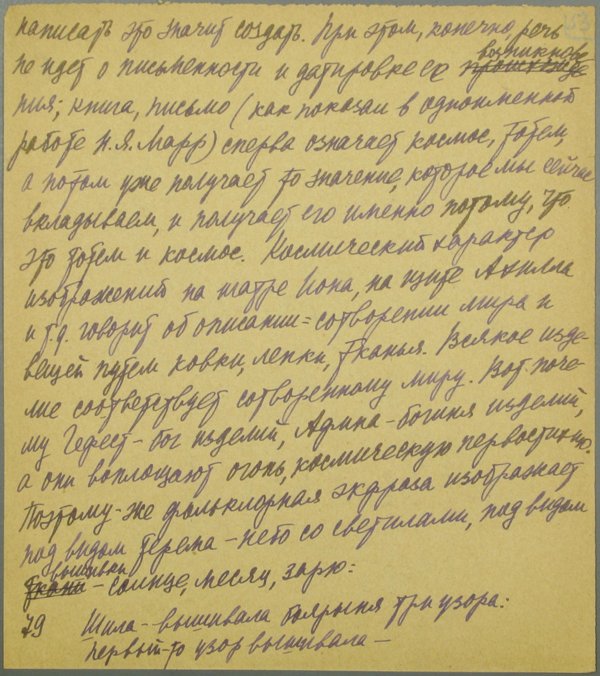 53
написать это значит создать. При этом, конечно, речь
не идет о письменности и датировке ее ~~происхожде~~ возникнове
ния; книга, письмо (как показал в одноименной
работе Н.Я. Марр) сперва означает космос, тотем,
а потом уже получает то значение, которое мы сейчас
вкладываем, и получает его именно потому, что
это тотем и космос. Космический характер
изображений на шатре Иона, на щите Ахилла
и т.д. говорит об описании = сотворении мира и
вещей путем ковки, лепки, тканья. Всякое изде-
лие соответствует сотворенному миру. Вот поче-
му Гефест – бог изделий, Афина – богиня изделий,
а они воплощают огонь, космическую первостихию.
Поэтому-же фольклорная экфраза изображает
под видом терема – небо со светилами, под видом
~~ткани~~ вышивки – солнце, месяц, зарю:
79 Шила-вышивала боярыня три узора:
первый-то узор вышивала –